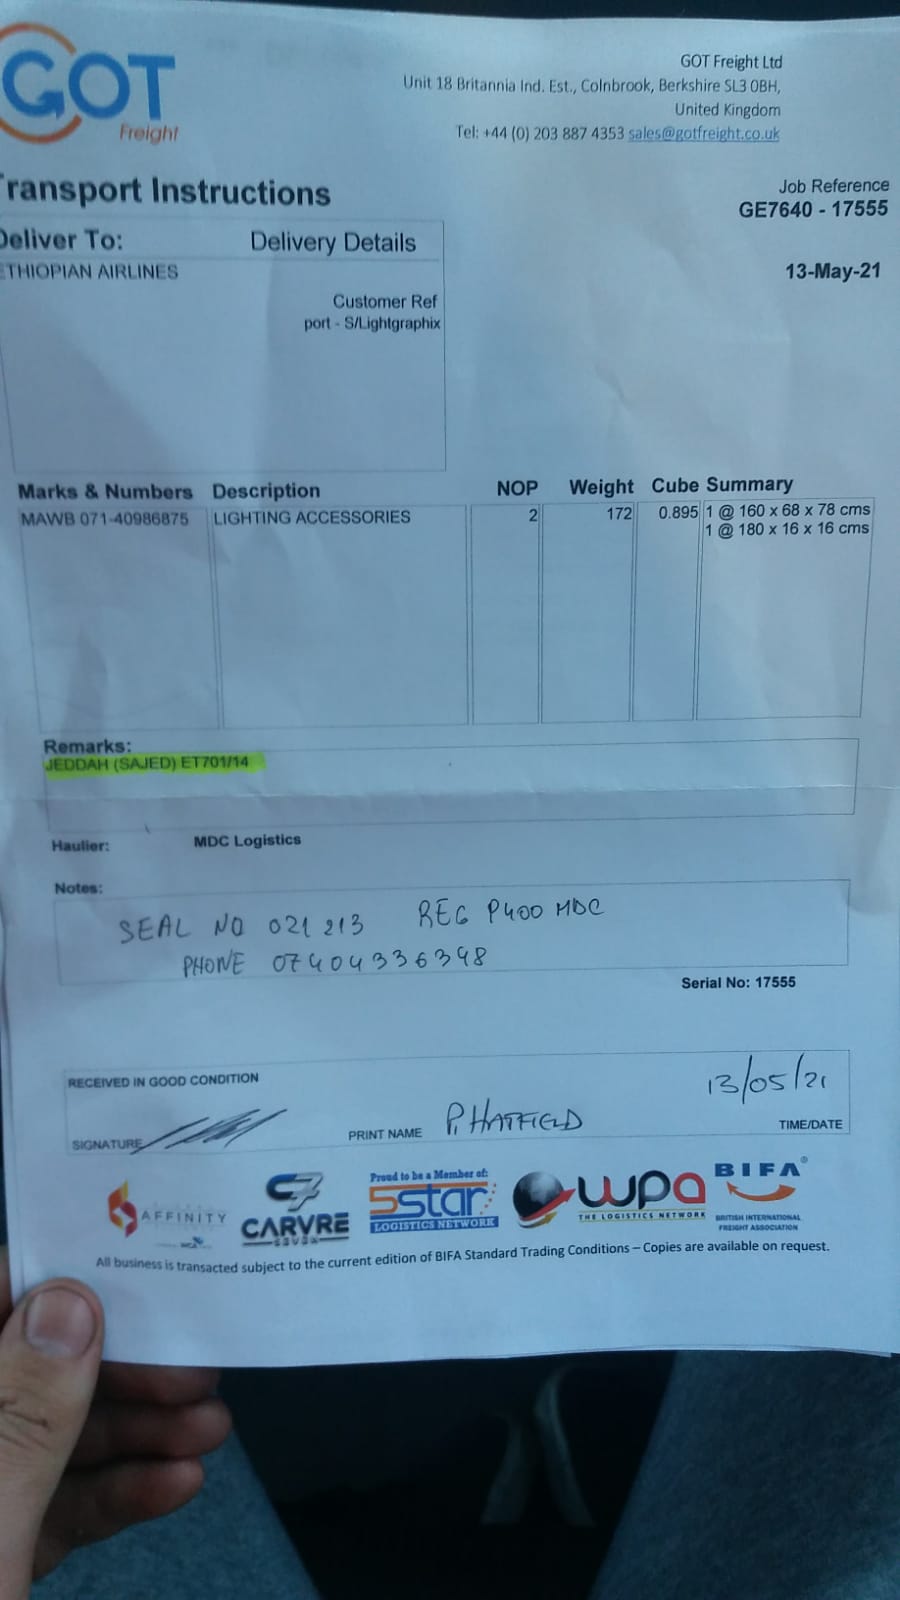 GOT
Freight
GOT Freight Ltd
Unit 18 Britannia Ind. Est., Colnbrook, Berkshire SL3 0BH,
United Kingdom
Tel: +44 (0) 203 887 4353 sales@gotfreight.co.uk
ransport Instructions
Job Reference
GE7640 - 17555
Deliver To: Delivery Details
THIOPIAN AIRLINES
13-May-21
Customer Ref
port - S/Lightgraphix
Marks & Numbers Description NOP Weight Cube Summary
MAWB 071-40986875 LIGHTING ACCESSORIES 2 172 0.895 1 @ 160 x 68 x 78 cms
1 @ 180 x 16 x 16 cms
Remarks:
JEDDAH (SAJED) ET701/14
Haulier: MDC Logistics
Notes:
SEAL NO 021 213 REG P400 MDC
PHONE 07404336348
Serial No: 17555
RECEIVED IN GOOD CONDITION
13/05/21
SIGNATURE PRINT NAME P. HATFIELD TIME/DATE
AFFINITY
C7
CARVRE
SEVEN
Proud to be a Member of:
5star
LOGISTICS NETWORK
wpa
THE LOGISTICS NETWORK
BIFA®
BRITISH INTERNATIONAL
FREIGHT ASSOCIATION
All business is transacted subject to the current edition of BIFA Standard Trading Conditions – Copies are available on request.